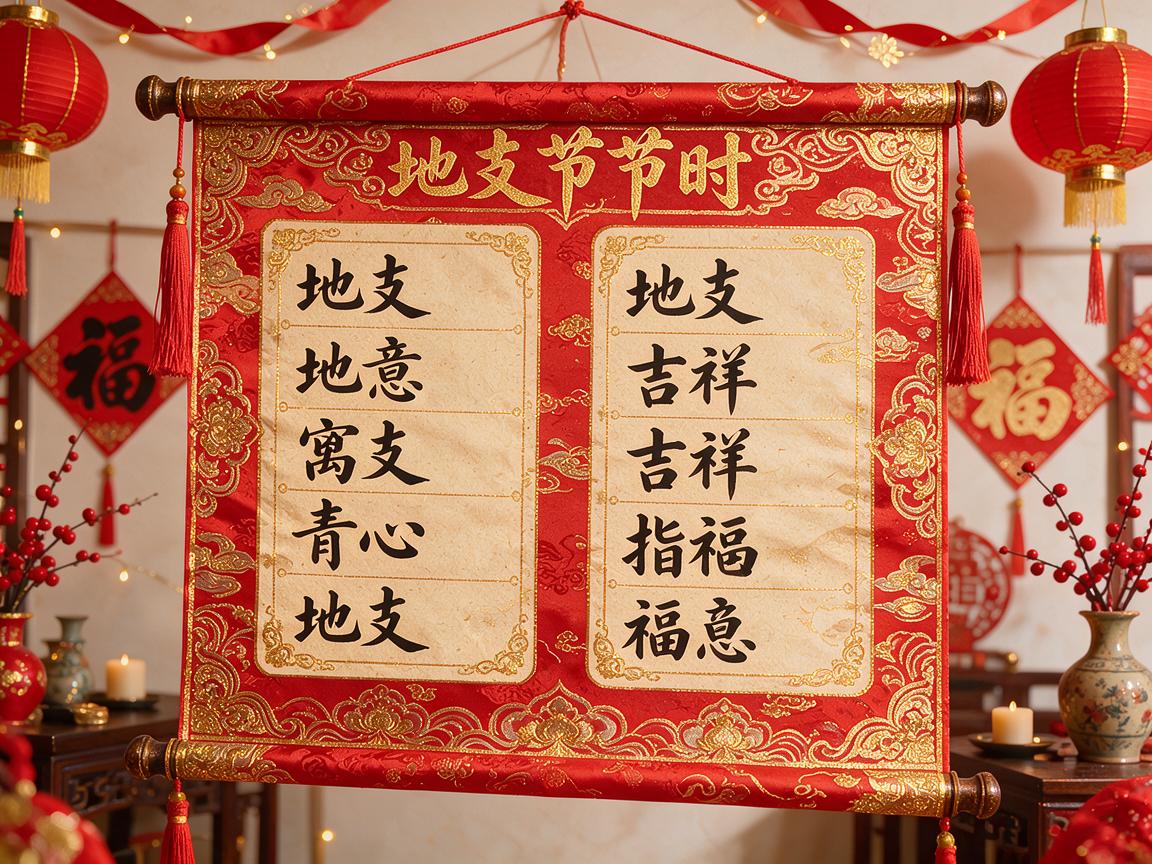 地支节节时
地支
地意
寓支
青心
地支
地支
吉祥
吉祥
指福
福意
福
福